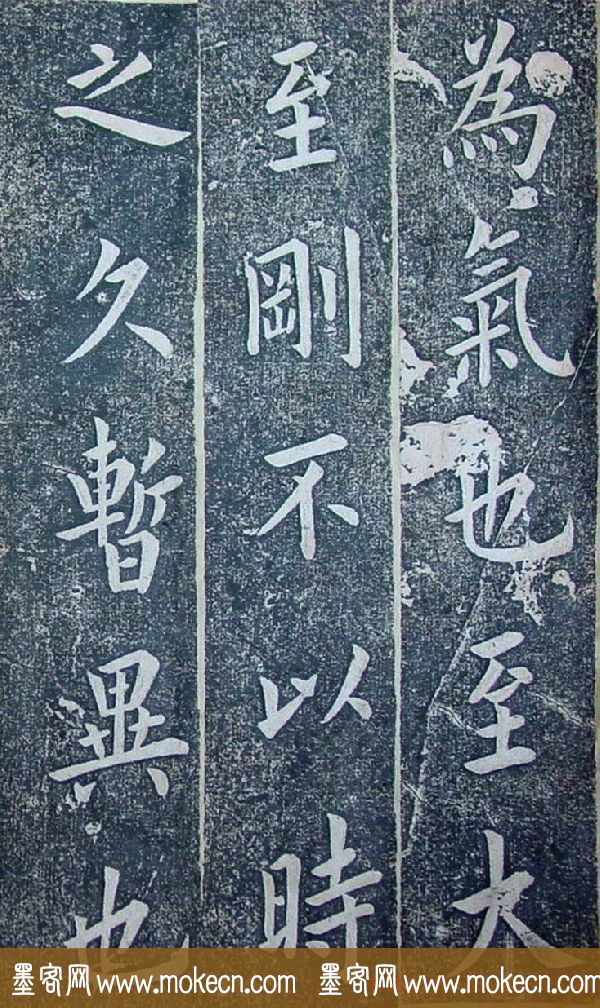 為氣也至大
至剛不以時
之久暫異也
墨客网 www.mokecn.com 墨客网 www.mokecn.com